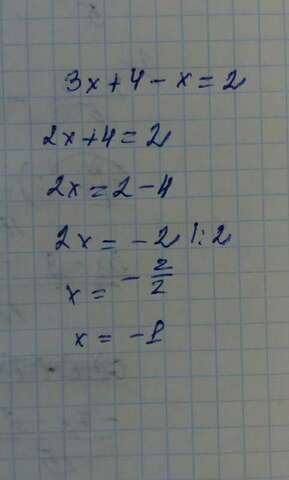 3x+4-x=2
2x+4=2
2x=2-4
2x=-2 |:2
x=-2/2
x=-1